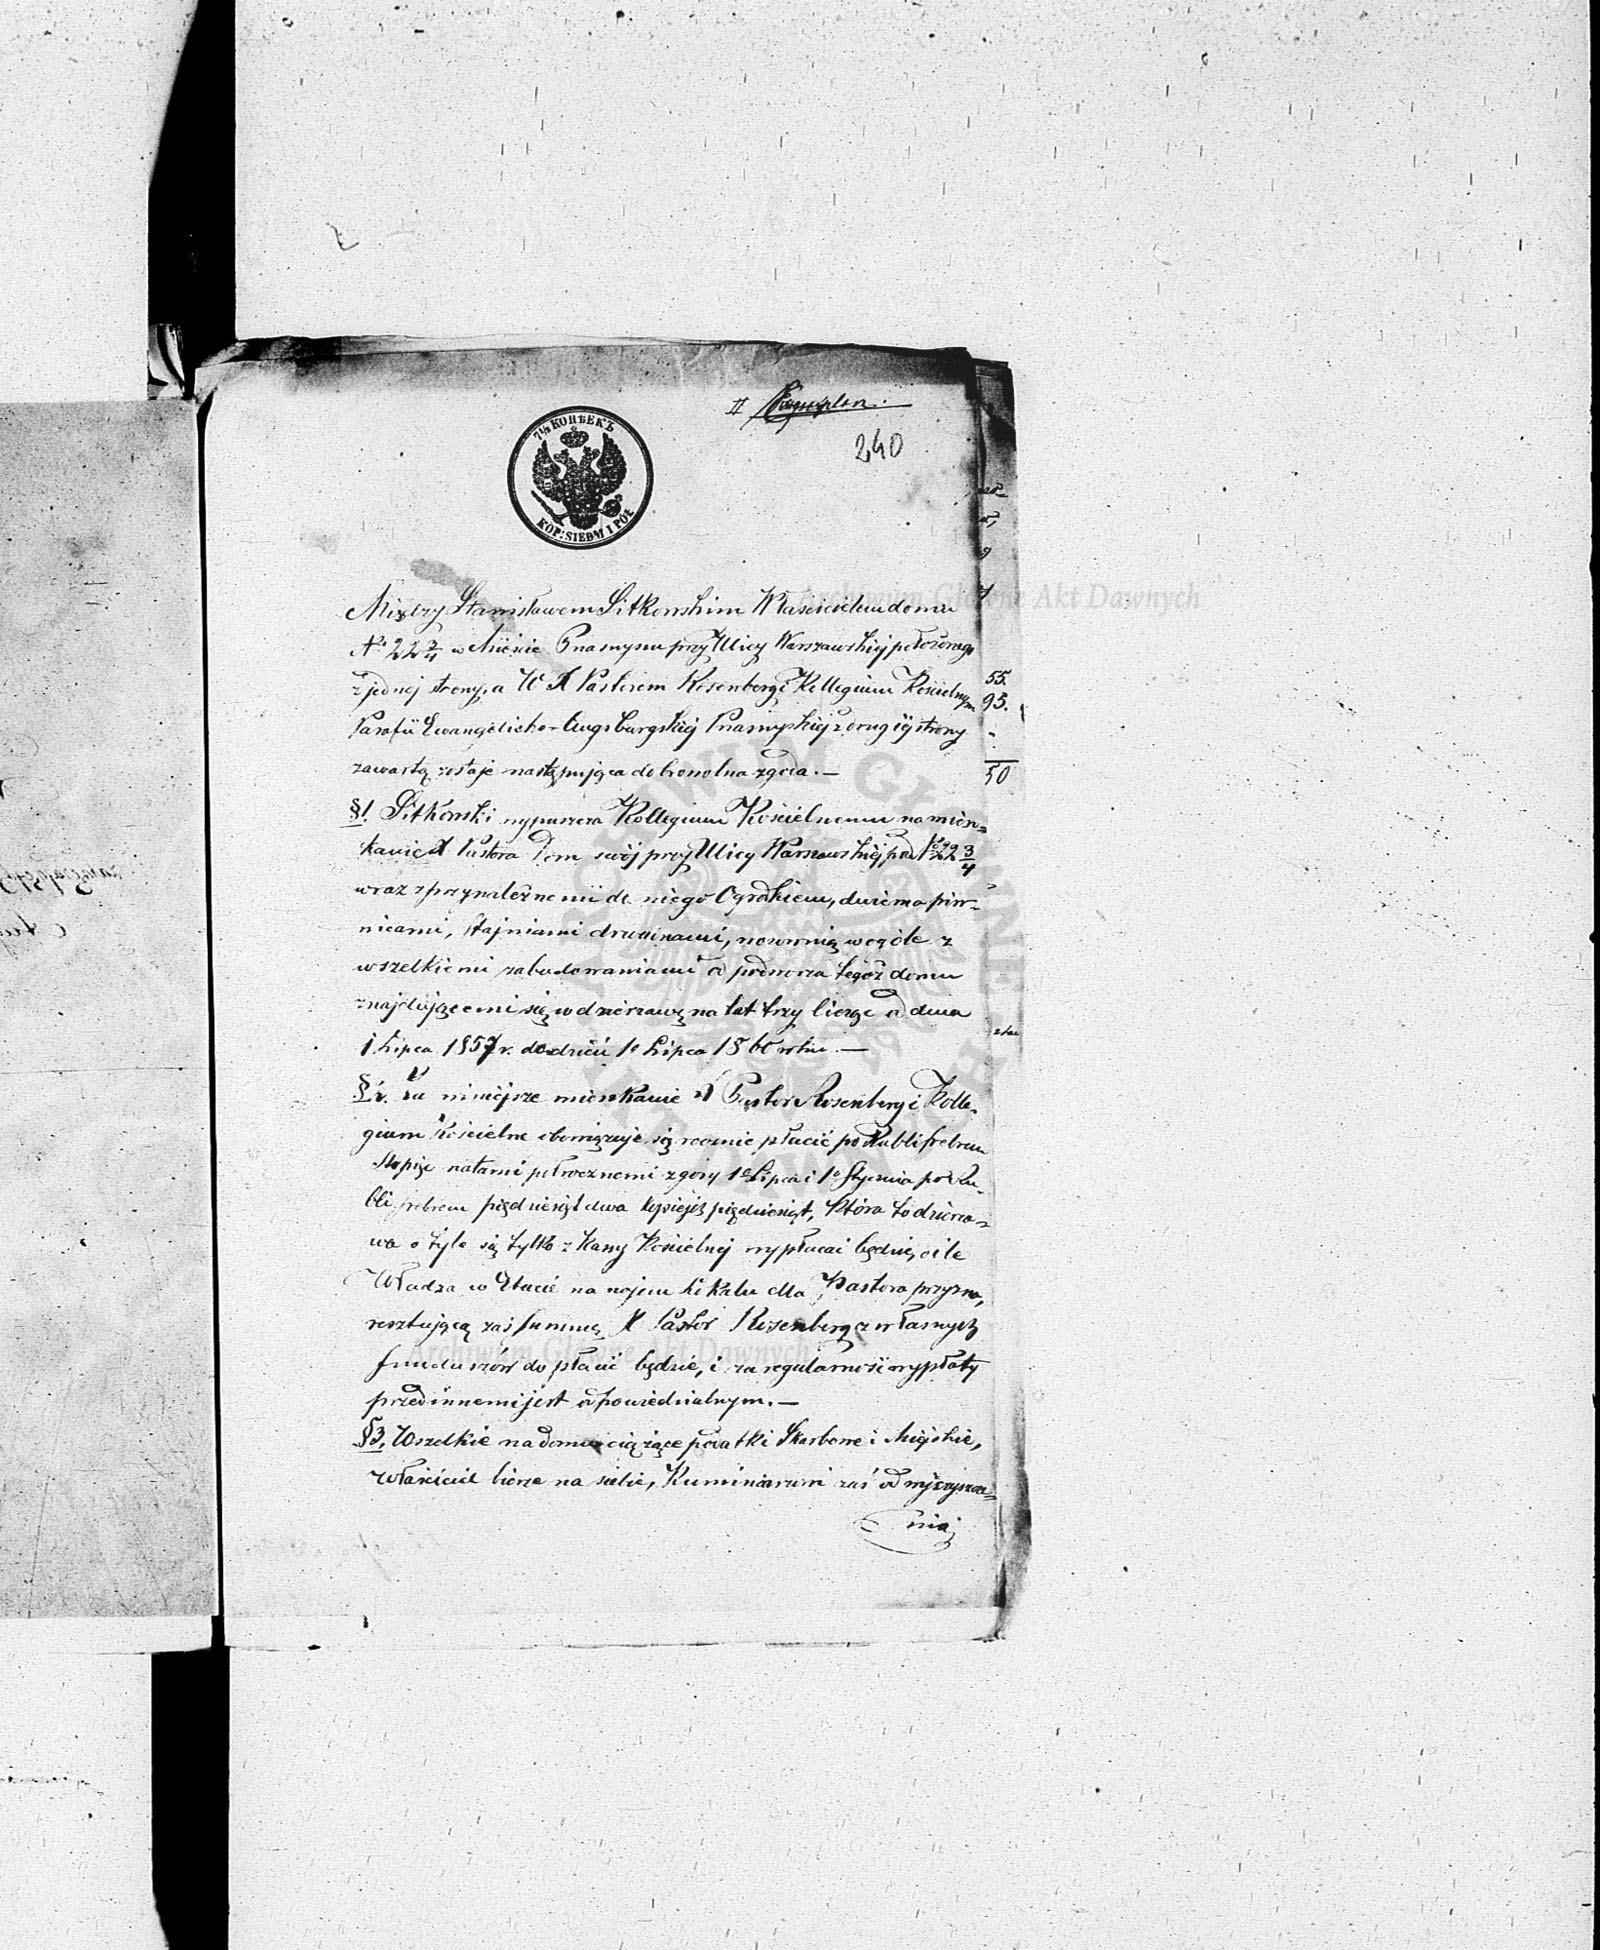 II Exemplar.
240
7½ КОПѢЕКЪ
KOP: SIEDM I PÓŁ
Między Stanisławem Sitkowskim Właścicielem domu
N° 22 3/4 w Mieście Prasnyszu przy Ulicy Warszawskiej położonego
z jednej strony, a W X Pastorem Rosenberg i Kollegium Kościelnym
Parafii Ewangelicko-Augsburgskiej Prasnyskiej z drugiej strony
zawartą zostaje następująca dobrowolna zgoda. —
§1. Sitkowski wypuszcza Kollegium Kościelnemu na miesz=
kanie X Pastora Dom swój przy Ulicy Warszawskiej pod N° 22 3/4
wraz z przynależnemi do niego Ogródkiem, dwiema piw=
nicami, stajniami drwalnami, wozownią wogóle z
wszelkiemi zabudowaniami w podwórza tegoż domu
znajdującemi się w dzierzawę na lat trzy licząc od dnia
1 Lipca 1857 r. do dnia 1° Lipca 1860 roku. —
§2. Za niniejsze mieszkanie X Pastor Rosenberg i Kolle-
gium Kościelne obowiązuje się rocznie płacić po Rubli srebrem
Stopięć ratami półrocznemi z góry 1° Lipca i 1° Stycznia po Ru-
bli srebrem pięćdziesiąt dwa kopiejek pięćdziesiąt, która to dzierza=
wa o tyle się tylko z Kassy Kościelnej wypłacać będzie, o ile
Władza w Etacie na najem lokalu dla Pastora przyzna,
resztującą zaś summę X Pastor Rosenberg z własnych
funduszów dopłacić będzie, i za regularność wypłaty
przed innemi jest odpowiedzialnym. —
§3. Wszelkie na domu ciążące podatki Skarbowe i Miejskie,
Właściciel bierze na siebie, Kuminiarzowi zaś od wyczyszcze=
nia
55.
95.
50
Archiwum Główne Akt Dawnych
Archiwum Główne Akt Dawnych
ARCHIWUM GŁÓWNE AKT DAWNYCH